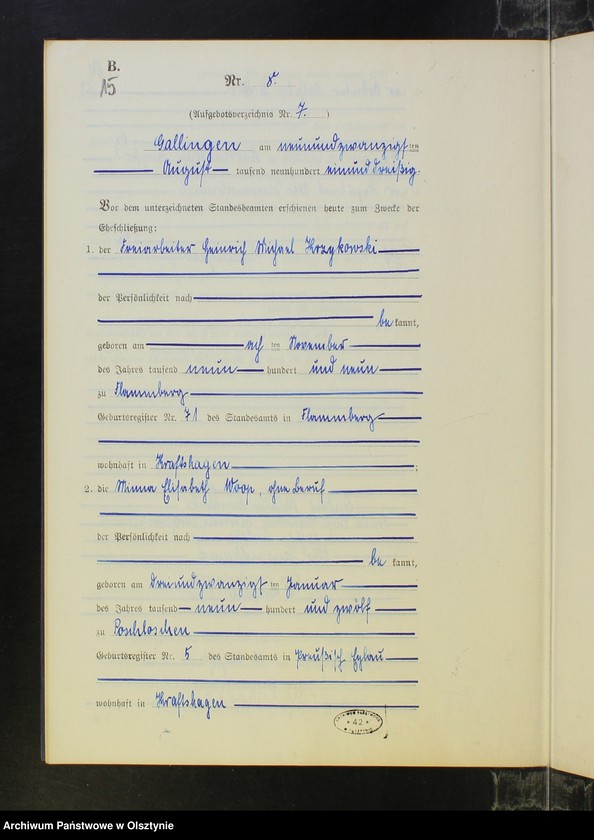 B.
15
Nr. 8.
(Aufgebotsverzeichnis Nr. 7. )
Gallingen am neunundzwanzigsten
August tausend neunhundert einunddreißig.
Vor dem unterzeichneten Standesbeamten erschienen heute zum Zwecke der
Eheschließung:
1. der Freiarbeiter Heinrich Michael Krzykowski
der Persönlichkeit nach
bekannt,
geboren am achten November
des Jahres tausend neun hundert und neun
zu Flammberg
Geburtsregister Nr. 71 des Standesamts in Flammberg
wohnhaft in Kraftshagen ;
2. die Minna Elisabeth Woop, ohne Beruf
der Persönlichkeit nach
bekannt,
geboren am dreiundzwanzigsten Januar
des Jahres tausend neun hundert und zwölf
zu Poschloschen
Geburtsregister Nr. 5 des Standesamts in Preußisch Eylau
wohnhaft in Kraftshagen
42
Archiwum Państwowe w Olsztynie